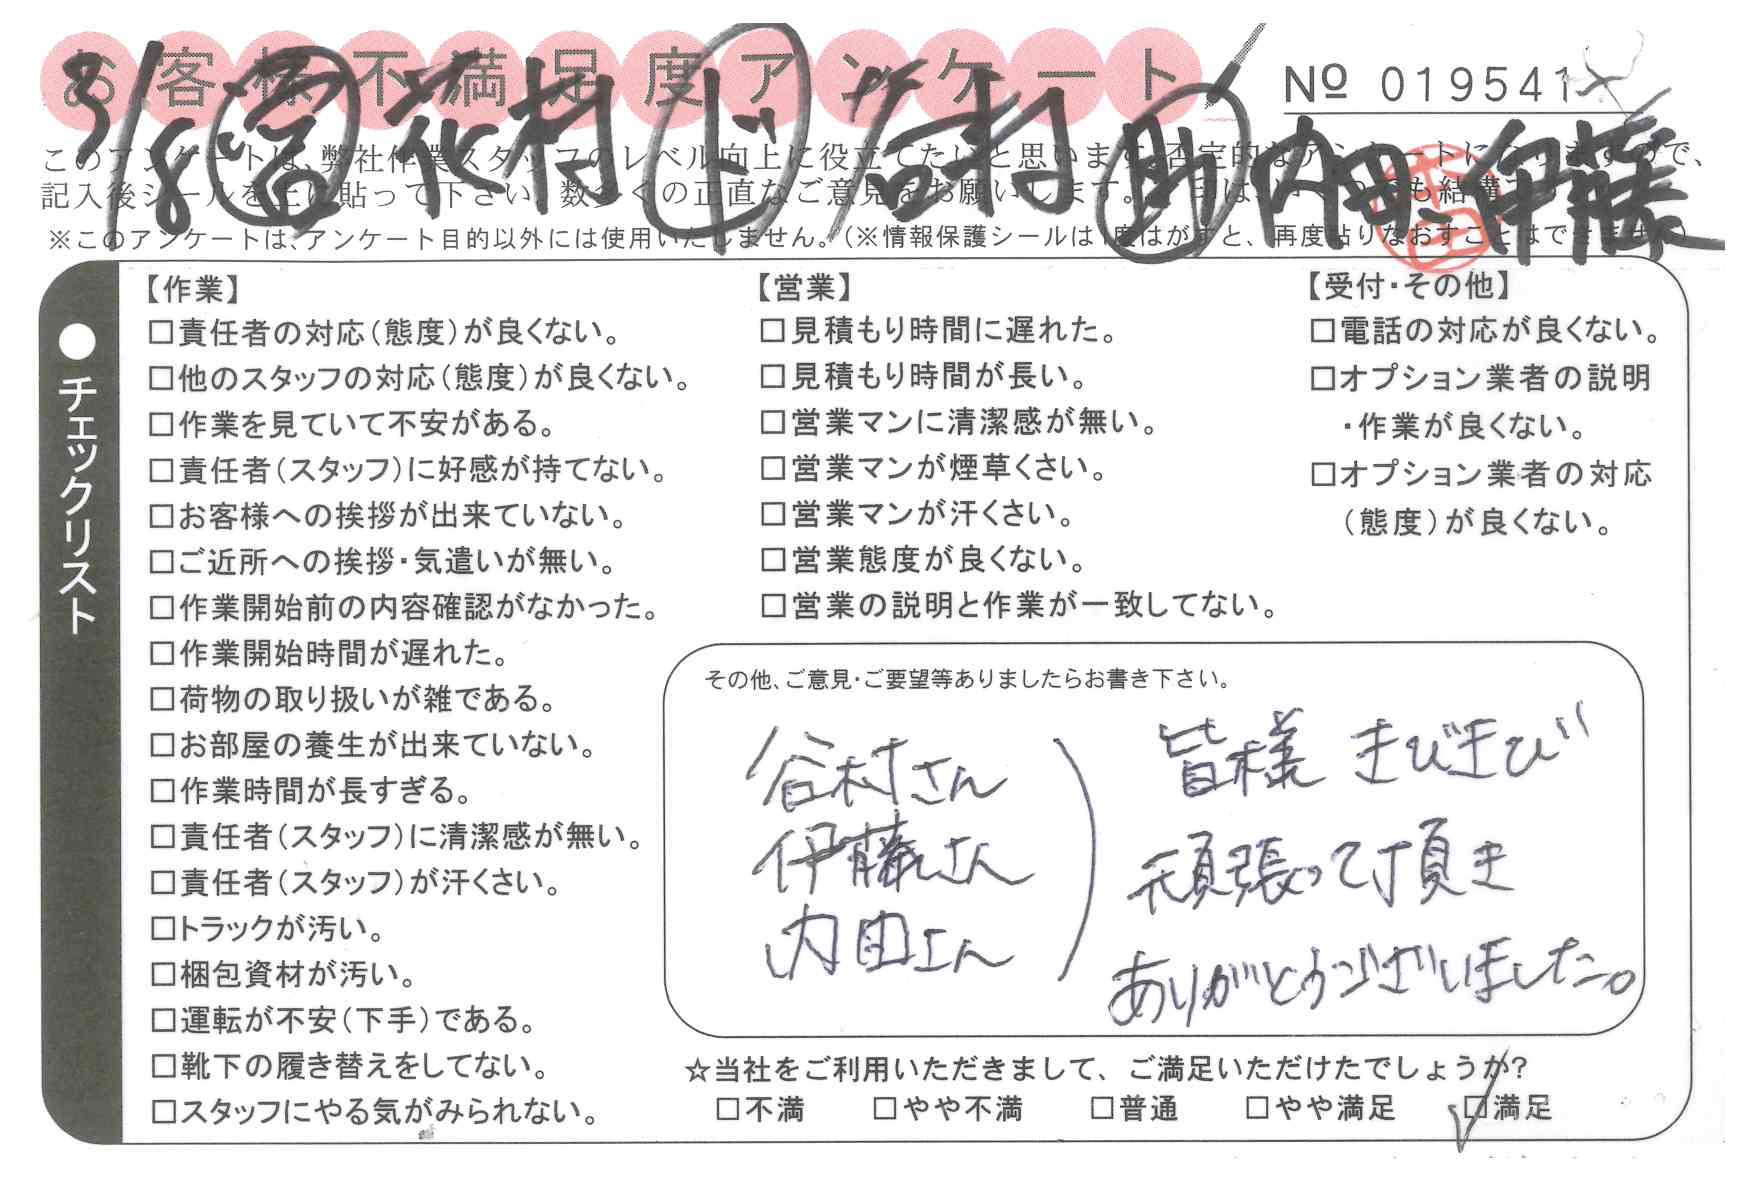 お客様不満足度アンケート
No 019541
3/8 営 花村 ド 谷村 助 内田、伊藤
このアンケートは、弊社作業スタッフのレベル向上に役立てたいと思います。否定的なアンケートになりますので、
記入後シールを上に貼って下さい。数多くの正直なご意見をお願いします。
※このアンケートは、アンケート目的以外には使用いたしません。(※情報保護シールは1度はがすと、再度貼りなおすことはできません)
●チェックリスト
【作業】
□責任者の対応(態度)が良くない。
□他のスタッフの対応(態度)が良くない。
□作業を見ていて不安がある。
□責任者(スタッフ)に好感が持てない。
□お客様への挨拶が出来ていない。
□ご近所への挨拶・気遣いが無い。
□作業開始前の内容確認がなかった。
□作業開始時間が遅れた。
□荷物の取り扱いが雑である。
□お部屋の養生が出来ていない。
□作業時間が長すぎる。
□責任者(スタッフ)に清潔感が無い。
□責任者(スタッフ)が汗くさい。
□トラックが汚い。
□梱包資材が汚い。
□運転が不安(下手)である。
□靴下の履き替えをしてない。
□スタッフにやる気がみられない。
【営業】
□見積もり時間に遅れた。
□見積もり時間が長い。
□営業マンに清潔感が無い。
□営業マンが煙草くさい。
□営業マンが汗くさい。
□営業態度が良くない。
□営業の説明と作業が一致してない。
【受付・その他】
□電話の対応が良くない。
□オプション業者の説明
・作業が良くない。
□オプション業者の対応
(態度)が良くない。
その他、ご意見・ご要望等ありましたらお書き下さい。
谷村さん
伊藤さん
内田さん
皆様 きびきび
頑張って頂き
ありがとうございました。
☆当社をご利用いただきまして、ご満足いただけたでしょうか?
□不満 □やや不満 □普通 □やや満足 ☑満足